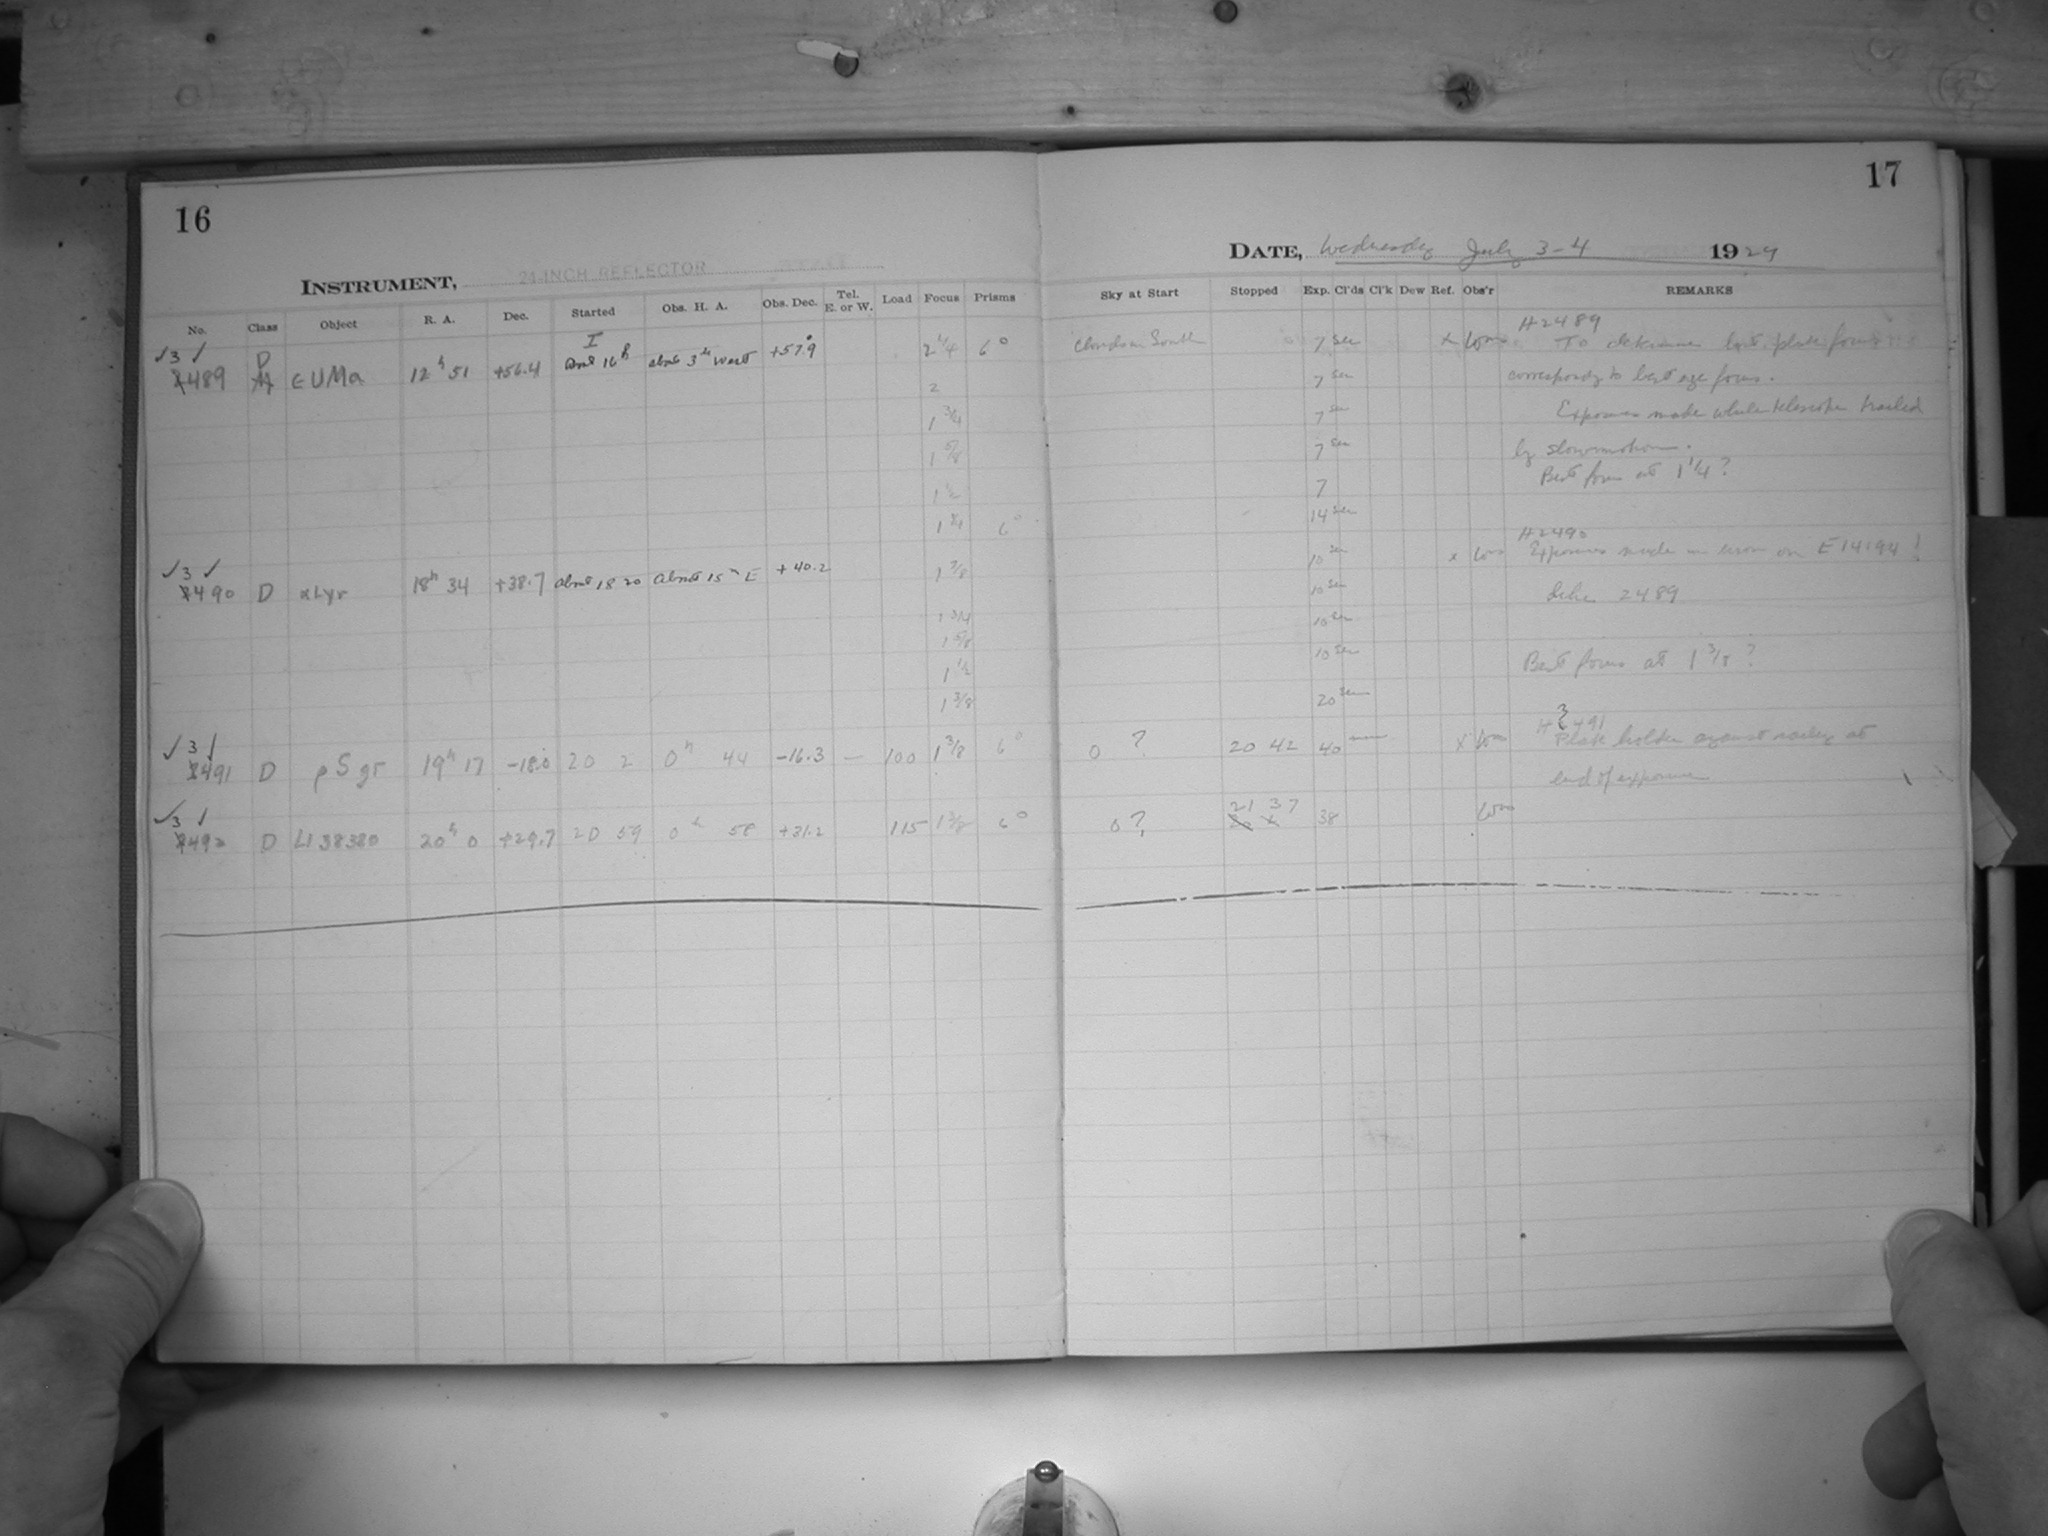 16
INSTRUMENT, 24-INCH REFLECTOR
No. Class Object R. A. Dec. Started Obs. H. A. Obs. Dec. Tel. E. or W. Load Focus Prisms
✓ 3 ✓ D I
2489 A ε UMa 12 h 51 +56.4 about 16 h about 3 h West +57.9 2 1/4 6°
2
1 3/4
1 5/8
1 1/2
1 1/4 6°
✓ 3 ✓
2490 D α Lyr 18 h 34 +38.7 about 18 20 about 15 m E +40.2 1 7/8
1 3/4
1 5/8
1 1/2
1 3/8
✓ 3 ✓
2491 D ρ Sgr 19 h 17 -18.0 20 2 0 h 44 -16.3 — 100 1 3/8 6°
✓ 3 ✓
2492 D Ll 38380 20 h 0 +29.7 20 59 0 h 58 +31.2 115 1 3/8 6°
17
DATE, Wednesday July 3-4 1929
Sky at Start Stopped Exp. Cl'ds Cl'k Dew Ref. Obs'r REMARKS
H 2489
Clouds in South 7 sec x To determine best plate focus
7 sec corresponding to best eye focus.
7 sec Exposures made while telescope trailed
7 sec by slow motion.
7 Best focus at 1 1/4 ?
14 sec
H 2490
10 sec x Exposures made in error on E 14194 !
10 sec like 2489
10 sec
10 sec Best focus at 1 3/8 ?
20 sec
3
H 2491
0 ? 20 42 40 min x Plate holder against at
end of exposure
21 37
0 ? 20 38